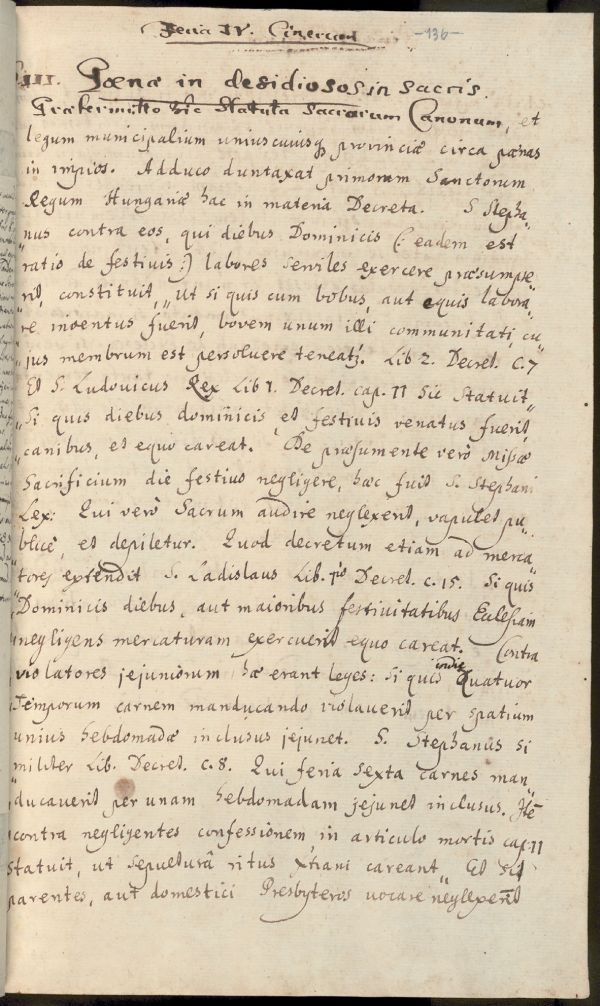 Feria IV. Cinerum
-136-
III. Pœnæ in desidiosos in sacris.
Prætermitto hîc Statuta Sacrorum Canonum, et
legum municipalium uniuscuiusq provinciæ circa pœnas
in impios. Adduco duntaxat primorum Sanctorum
Regum Hungariæ hac in materia Decreta. S Stepha„
nus contra eos, qui diebus Dominicis (: eadem est
ratio de festivis :) labores serviles exercere præsumpse„
rit, constituit, „ut si quis cum bobus, aut equis labora„
re inventus fuerit, bovem unum illi communitati, cu„
jus membrum est persolvere teneatj. Lib 2. Decret. C.7
Et S. Ludovicus Rex Lib 1. Decret. cap. 11 Sic Statuit
„Si quis diebus dominicis, et festivis venatus fuerit,
„canibus, et equo careat. De præsumente verò Missæ
Sacrificium die festivo negligere, hæc fuit S. Stephani
Lex: Qui verò Sacrum audire neglexerit, vapulet pu„
blicè, et depiletur. Quod decretum etiam ad merca„
tores extendit S. Ladislaus Lib. 1mo Decret. c. 15. Si quis
„Dominicis diebus, aut maioribus festivitatibus Eclesiam
„negligens mercaturam exercuerit equo careat. Contra
violatores jejuniorum hæ erant leges: Si quis indie Quatuor
„Temporum carnem manducando violaverit per spatium
unius hebdomadæ inclusus jejunet. S. Stephanus si
militer Lib. Decret. c. 8. Qui feria sexta carnes man„
„ducaverit per unam hebdomadam jejunet inclusus. Itē
contra negligentes confessionem, in articulo mortis cap. 11
Statuit, ut sepulturâ ritus Xtiani careant„ Et si
parentes, aut domestici Presbyteros vocare neglexerīt